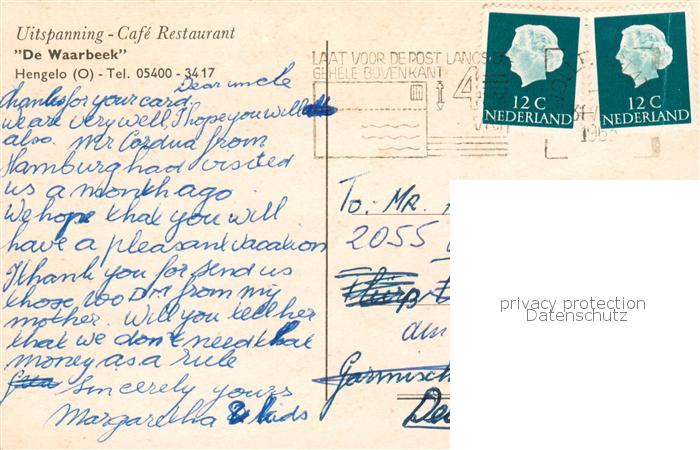 Uitspanning - Café Restaurant
"De Waarbeek"
Hengelo (O) - Tel. 05400 - 3417
Dear uncle
thanks for your card.
we are very well, I hope you will
also. Mr Cordua from
Hamburg had visited
us a month ago
We hope that you will
have a pleasant vacation
I thank you for send us
those 200 DM from my
mother. Will you tell her
that we don't need that
money as a rule
Sincerely yours
Margaretha & kids
LAAT VOOR DE POST LANGS DE
GEHELE BOVENKANT
14
12 C
NEDERLAND
12 C
NEDERLAND
To: MR.
2055
am
Garmisch
privacy protection
Datenschutz